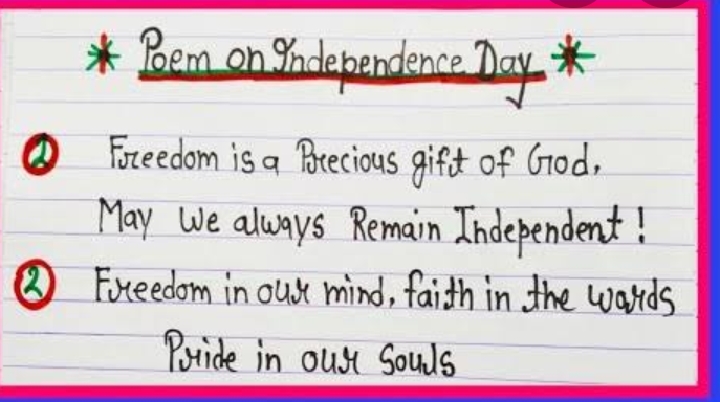 * Poem on Independence Day *
1 Freedom is a Precious gift of God,
May We always Remain Independent!
2 Freedom in our mind, faith in the wards
Pride in our Souls